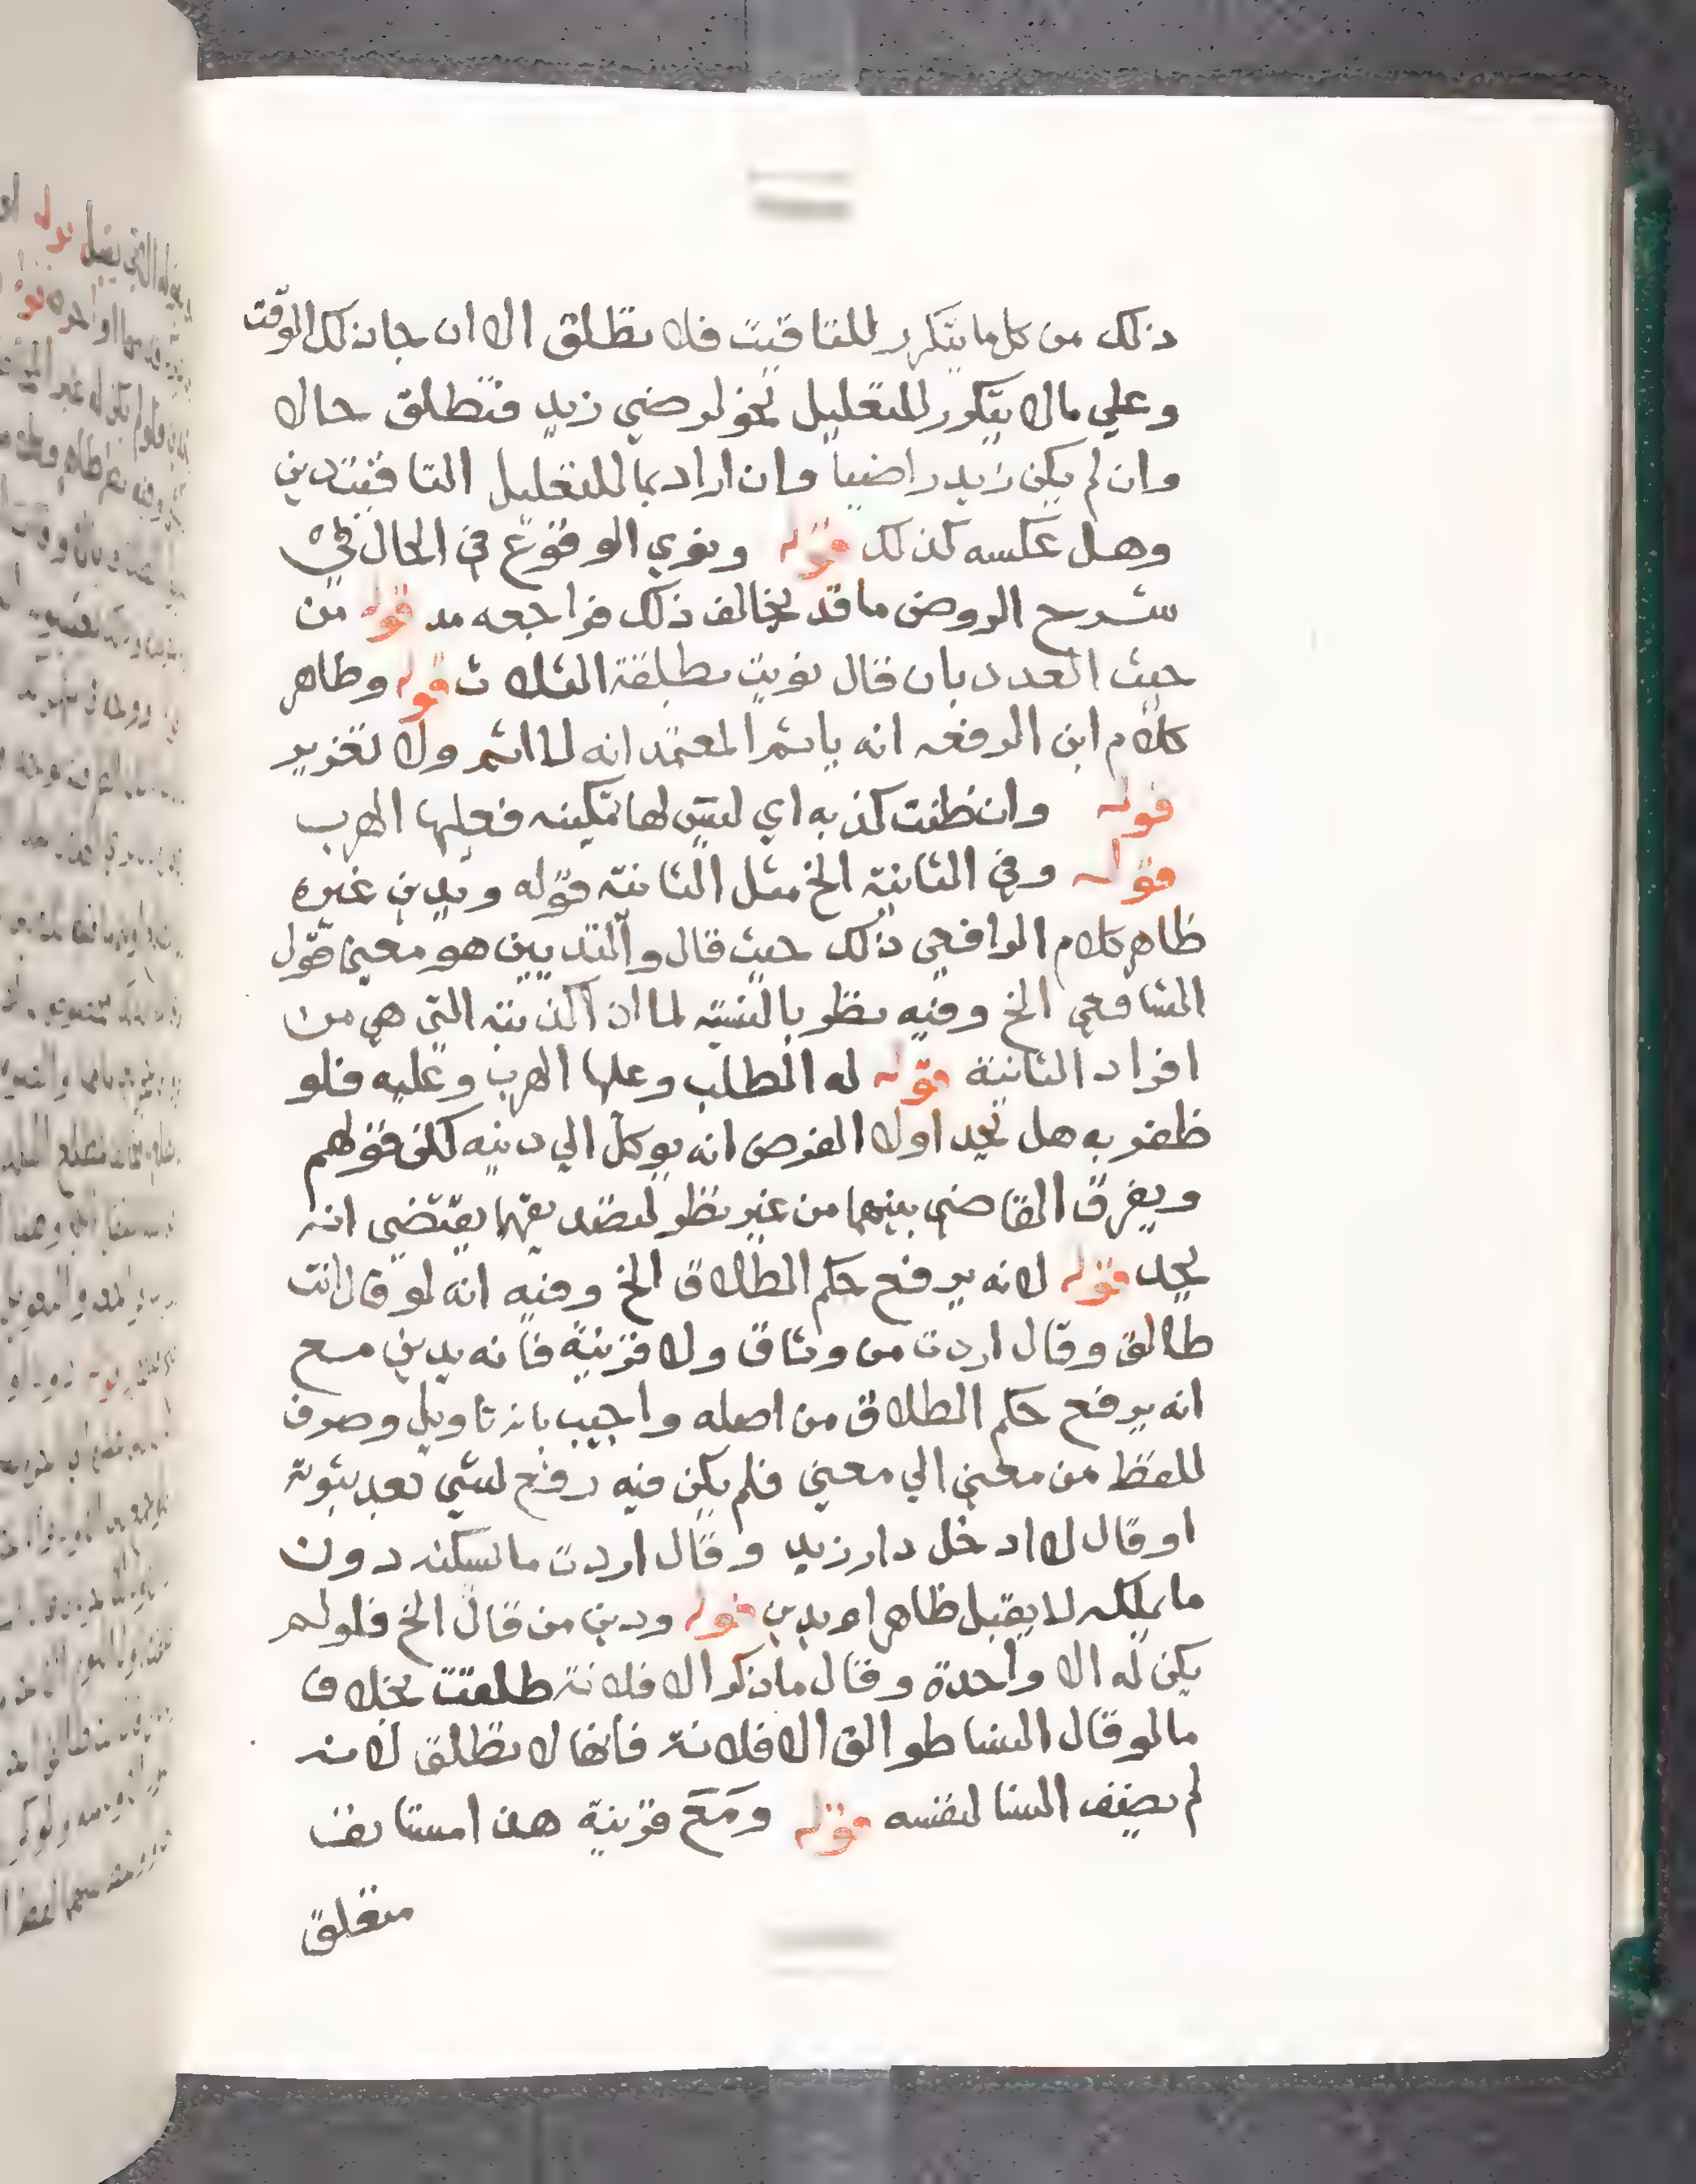 ذلك من كل ما يتكرر للتاقيت فلا تطلق الا ان جا ذلك الوقت
وعلي مالا يتكرر للتعليل نحو لرضي زيد فتطلق حالا
وان لم يكن زيد راضيا وان اراد بما للتعليل التاقيت دين
وهل عكسه كذلك قوله ونوي الوقوع في الحال في
شرح الروض ما قد يخالف ذلك فراجعه مد قوله من
حيث العدد بان قال نويت بطلقة الثلاث قوله وظاهر
كلام ابن الرفعه انه ياثم المعتمد انه لا اثم ولا تعزير
قوله وان ظنت كذبه اي ليس لها تمكينه فعليها الهرب
قوله وفي الثانية الخ مثل الثانية قوله ويدين غيره
ظاهر كلام الرافعي ذلك حيث قال والتديين هو معني قول
الشافعي الخ وفيه نظر بالنسبة لما ان الذيته التي هي من
افراد الثانية قوله له الطلب وعليها الهرب وعليه فلو
ظفر به هل يحد اولا الفرض انه يوكل الي دينه لكن قولهم
ويفرق القاضي بينهما من غير نظر لتصديقها يقتضي انه
يحد قوله لانه يرفع حكم الطلاق الخ وفيه انه لو قال انت
طالق وقال اردت من وثاق ولا قرينة فانه يدين مع
انه يرفع حكم الطلاق من اصله واجيب بانه تاويل وصرف
للفظ من معني الي معني فلم يكن فيه رفع لشي بعد ثبوته
او قال لا ادخل دار زيد وقال اردت ما يسكنه دون
ما يملكه لا يقبل ظاهرا ويدين قوله ودين من قال الخ فلو لم
يكن له الا واحدة وقال ما ذكر الا فلانة طلقت بخلاف
ما لو قال النسا طوالق الا فلانة فانها لا تطلق لانه
لم يضف النسا لنفسه قوله ومَعَ قرينة هذا مستانف
متعلق